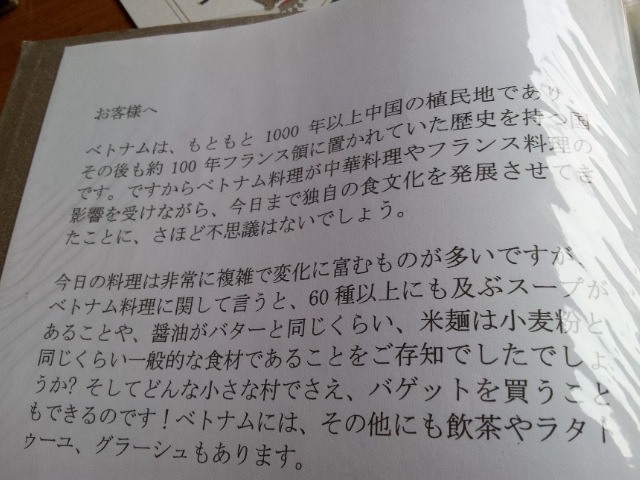 お客様へ
ベトナムは、もともと 1000 年以上中国の植民地であり
その後も約 100 年フランス領に置かれていた歴史を持つ国
です。ですからベトナム料理が中華料理やフランス料理の
影響を受けながら、今日まで独自の食文化を発展させてき
たことに、さほど不思議はないでしょう。
今日の料理は非常に複雑で変化に富むものが多いですが、
ベトナム料理に関して言うと、60 種以上にも及ぶスープが
あることや、醤油がバターと同じくらい、米麺は小麦粉と
同じくらい一般的な食材であることをご存知でしたでしょ
うか? そしてどんな小さな村でさえ、バゲットを買うこと
もできるのです！ベトナムには、その他にも飲茶やラタト
ゥーユ、グラーシュもあります。